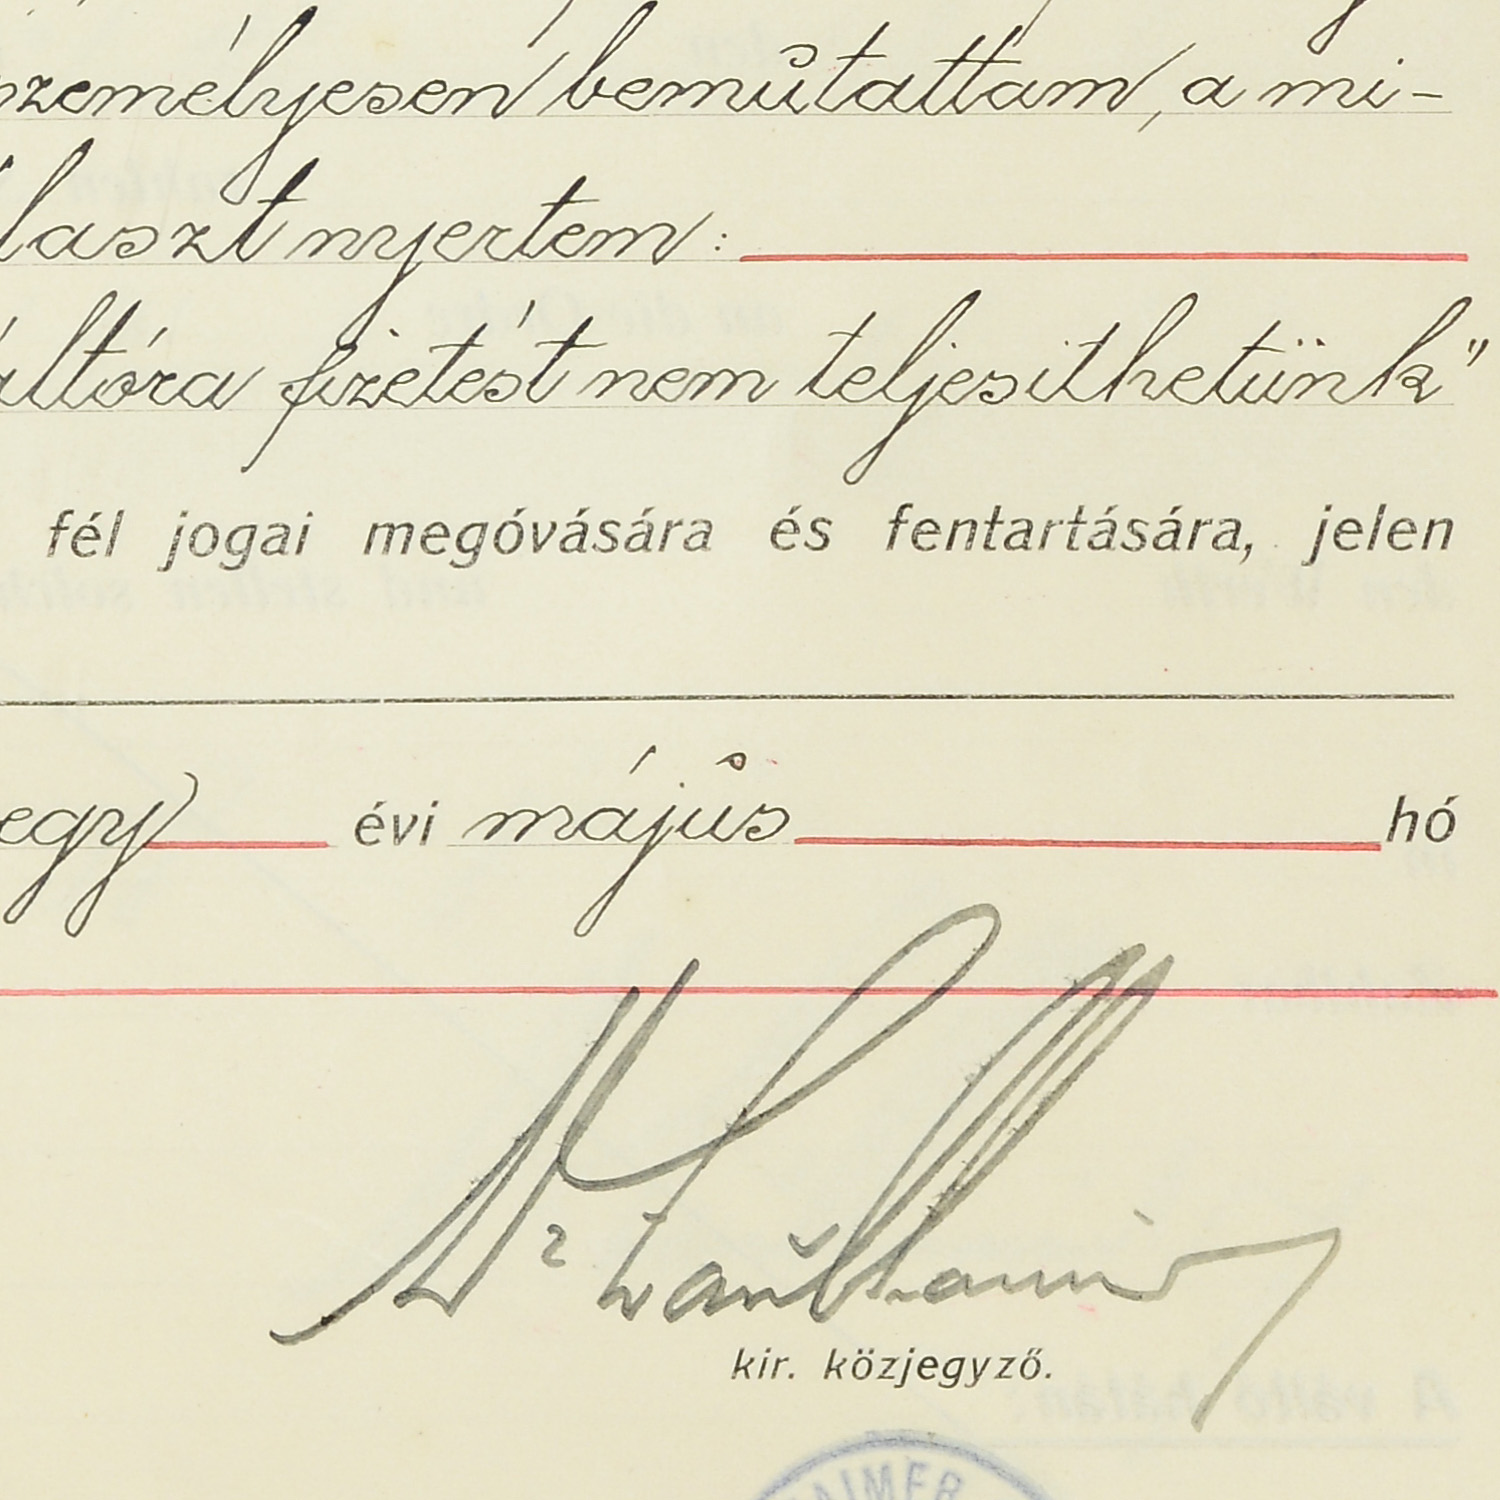 személyesen bemutattam, a mi-
laszt nyertem:
áltóra fizetést nem teljesithetünk"
fél jogai megóvására és fentartására, jelen
egy évi május hó
Dr
kir. közjegyző.